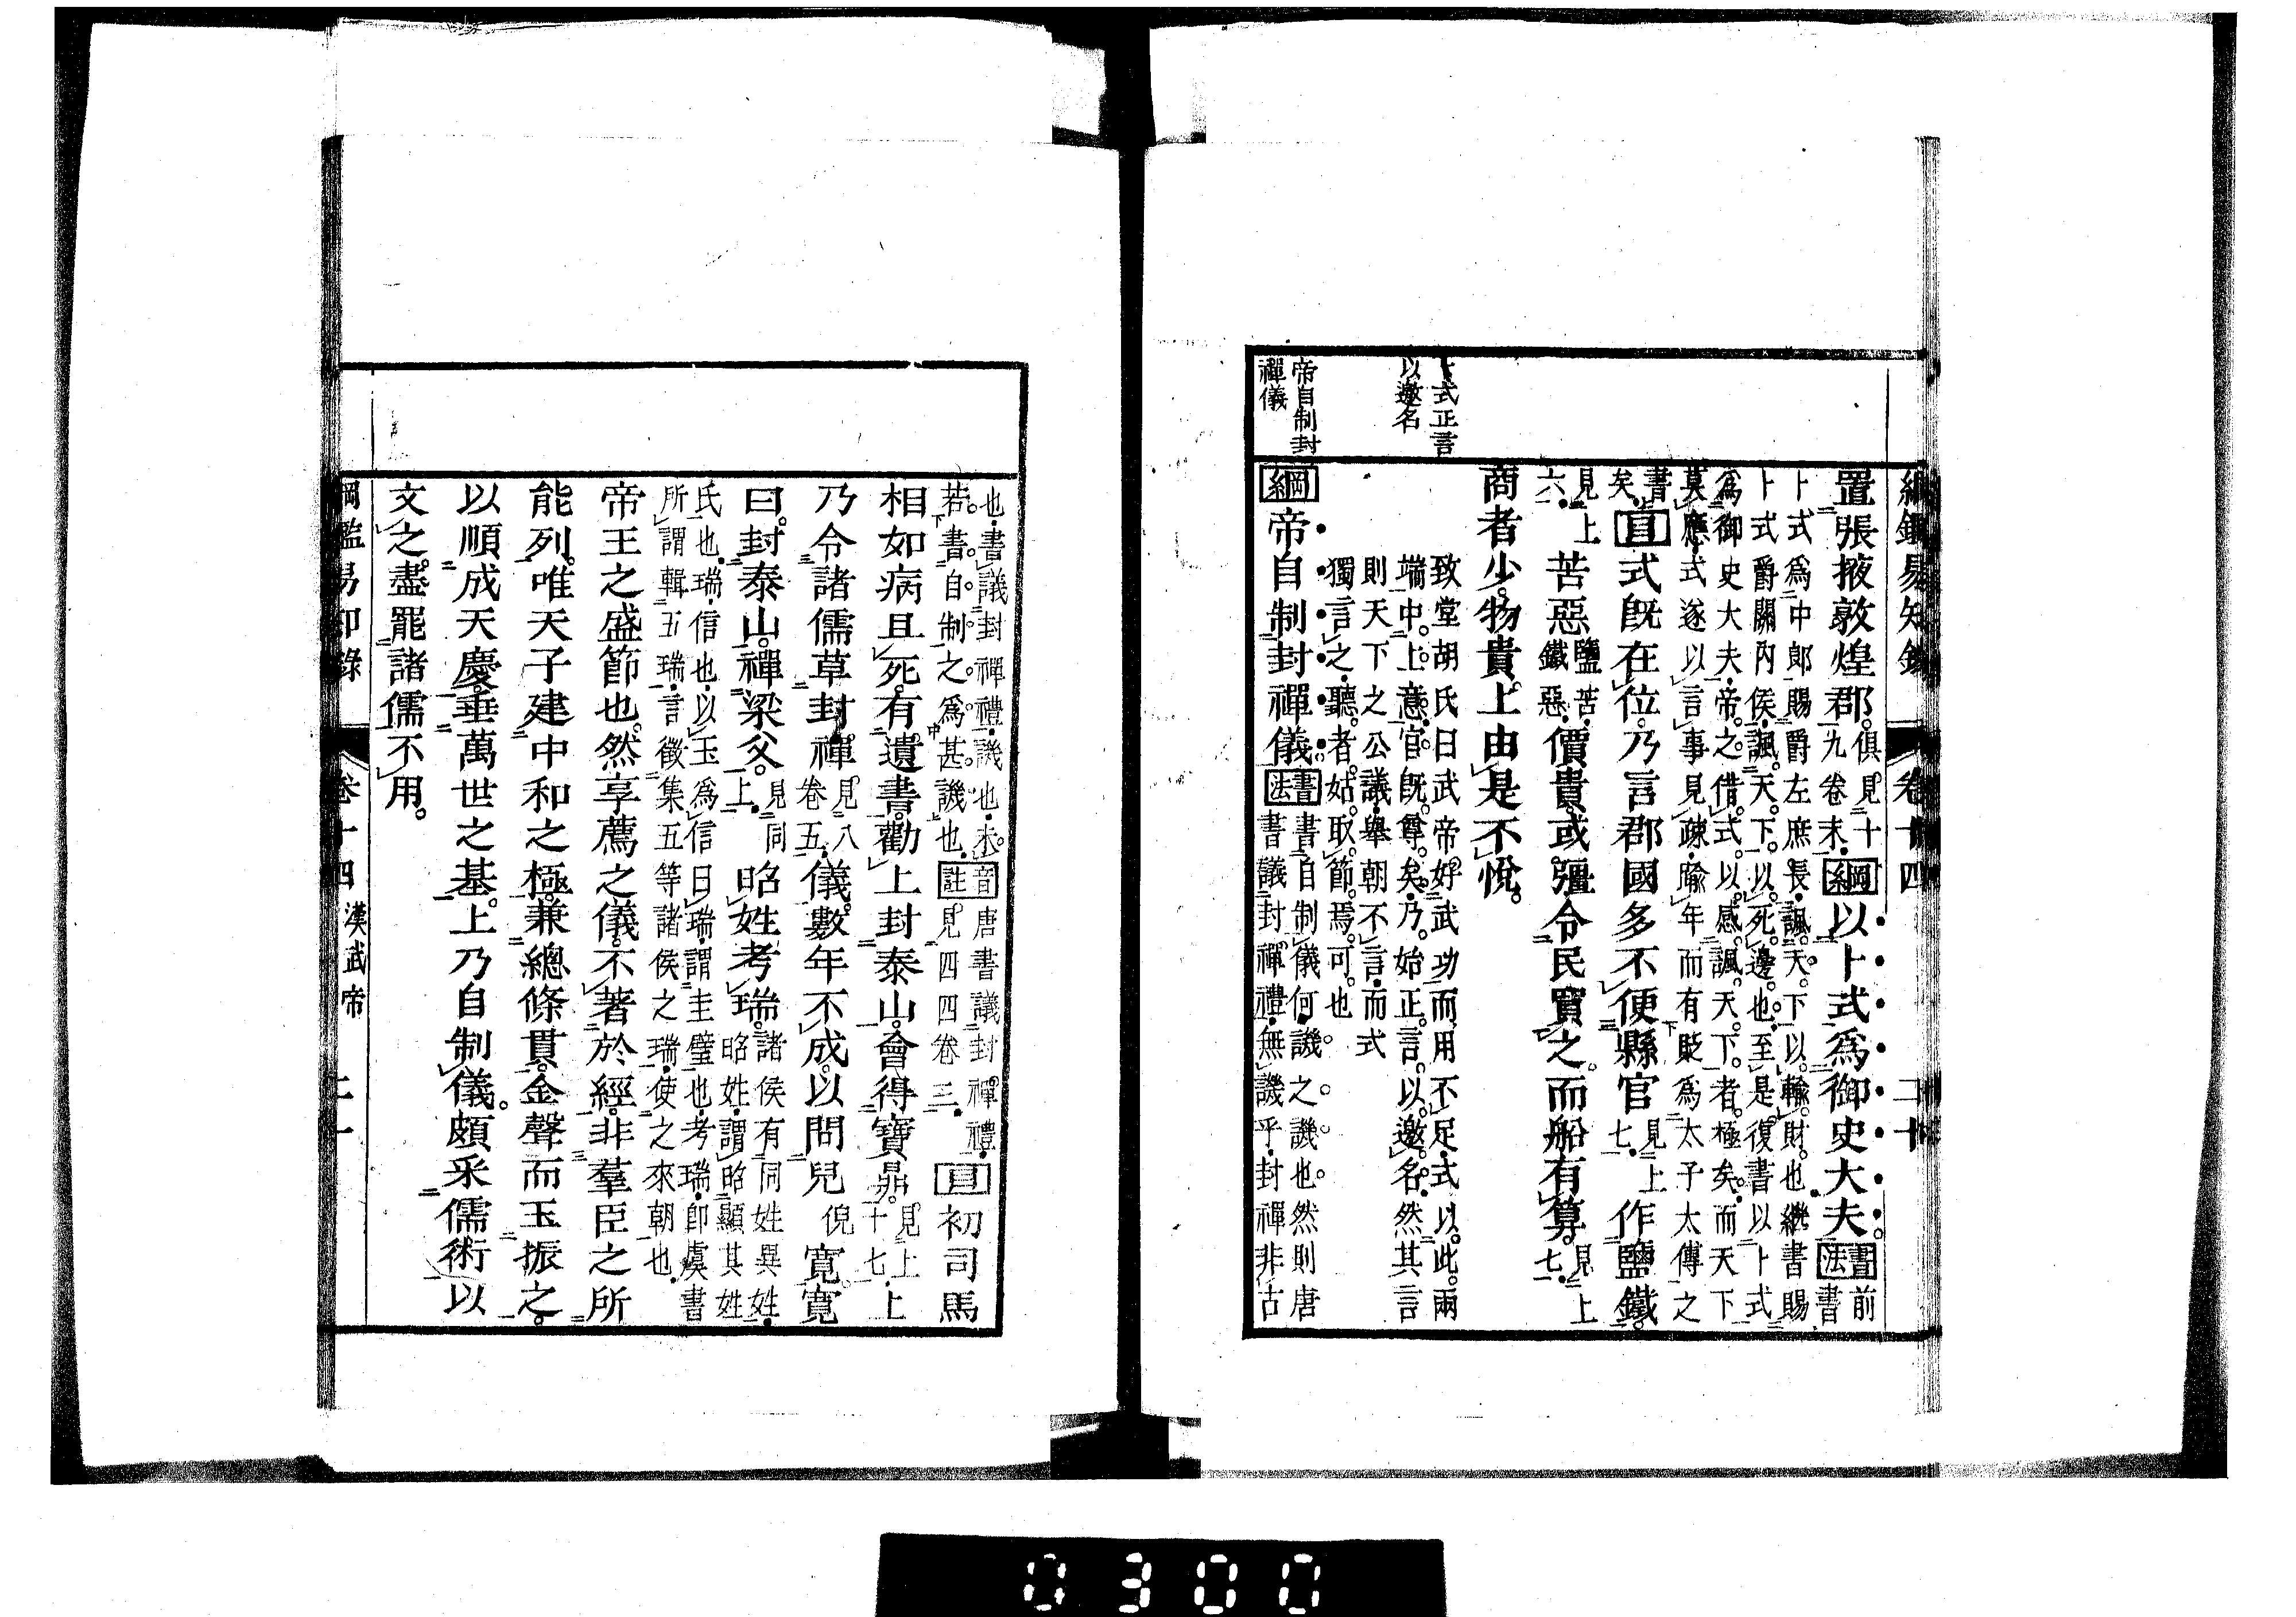 綱鑑易知錄 卷十四 二十
置張掖敦煌郡。俱見十九卷末。綱以卜式爲御史大夫。書法書前
卜式爲中郎賜爵左庶長諷天下以輸財也繼書賜
卜式爵關內侯諷天下以死邊也至是復書以卜式
爲御史大夫帝之借式以感諷天下者極矣而天下
莫應式遂以言事見疎踰年而有貶爲太子太傅之
書矣。目式既在位乃言郡國多不便縣官見上七。作鹽鐵。
見上六。苦惡鹽苦鐵惡。價貴或彊令民買之。而船有算。見上七。
商者少。物貴。上由是不悅。
致堂胡氏曰武帝好武功而用不足式以此兩
端中上意官既尊矣乃始正言以邀名然其言
則天下之公議舉朝不言而式
獨言之聽者姑取節焉可也
綱帝自制封禪儀書法書自制儀何譏之譏也然則唐
書議封禪禮無譏乎封禪非古
卜式正言
以邀名
帝自制封
禪儀
也書議封禪禮譏也未
若書自制之爲甚譏也。音註唐書議封禪禮見四四卷三。目初司馬
相如病且死有遺書勸上封泰山。會得寶鼎。見上十七。上
乃令諸儒草封禪見八卷五。儀。數年不成。以問兒倪寬。寬
曰。封泰山。禪梁父。見同上。昭姓考瑞。諸侯有同姓異姓
昭姓謂昭顯其姓
氏也瑞信也以玉爲信曰瑞謂圭璧也考瑞卽虞書
所謂輯五瑞言徵集五等諸侯之瑞使之來朝也
帝王之盛節也。然享薦之儀。不著於經。非羣臣之所
能列。唯天子建中和之極。兼總條貫。金聲而玉振之。
以順成天慶。垂萬世之基。上乃自制儀。頗采儒術以
文之。盡罷諸儒不用。
綱鑑易知錄 卷十四 漢武帝 二十一
0300